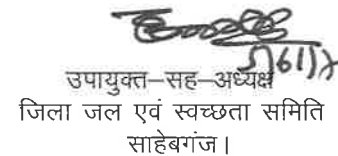 उपायुक्त–सह–अध्यक्ष
जिला जल एवं स्वच्छता समिति
साहेबगंज।